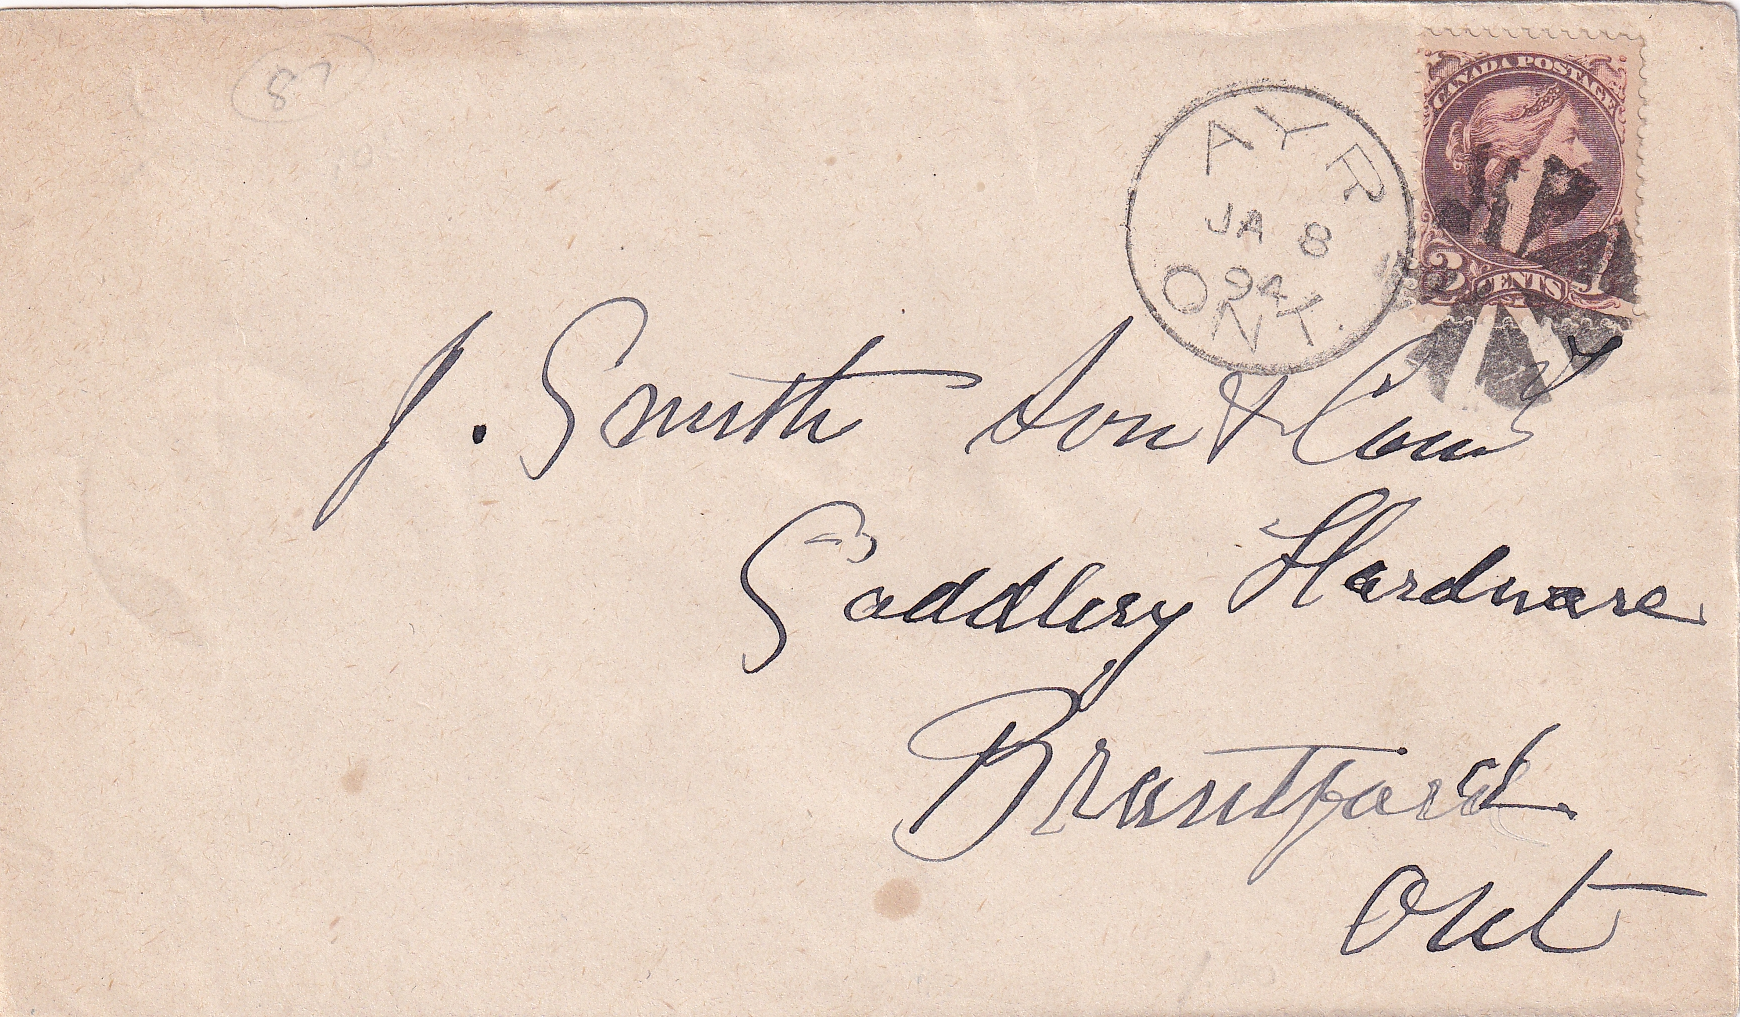 87
CANADA POSTAGE
3 CENTS
AYR
JA 8
94
ONT.
J. Smith Son & Com'y
Saddlery Hardware
Brantford
Ont